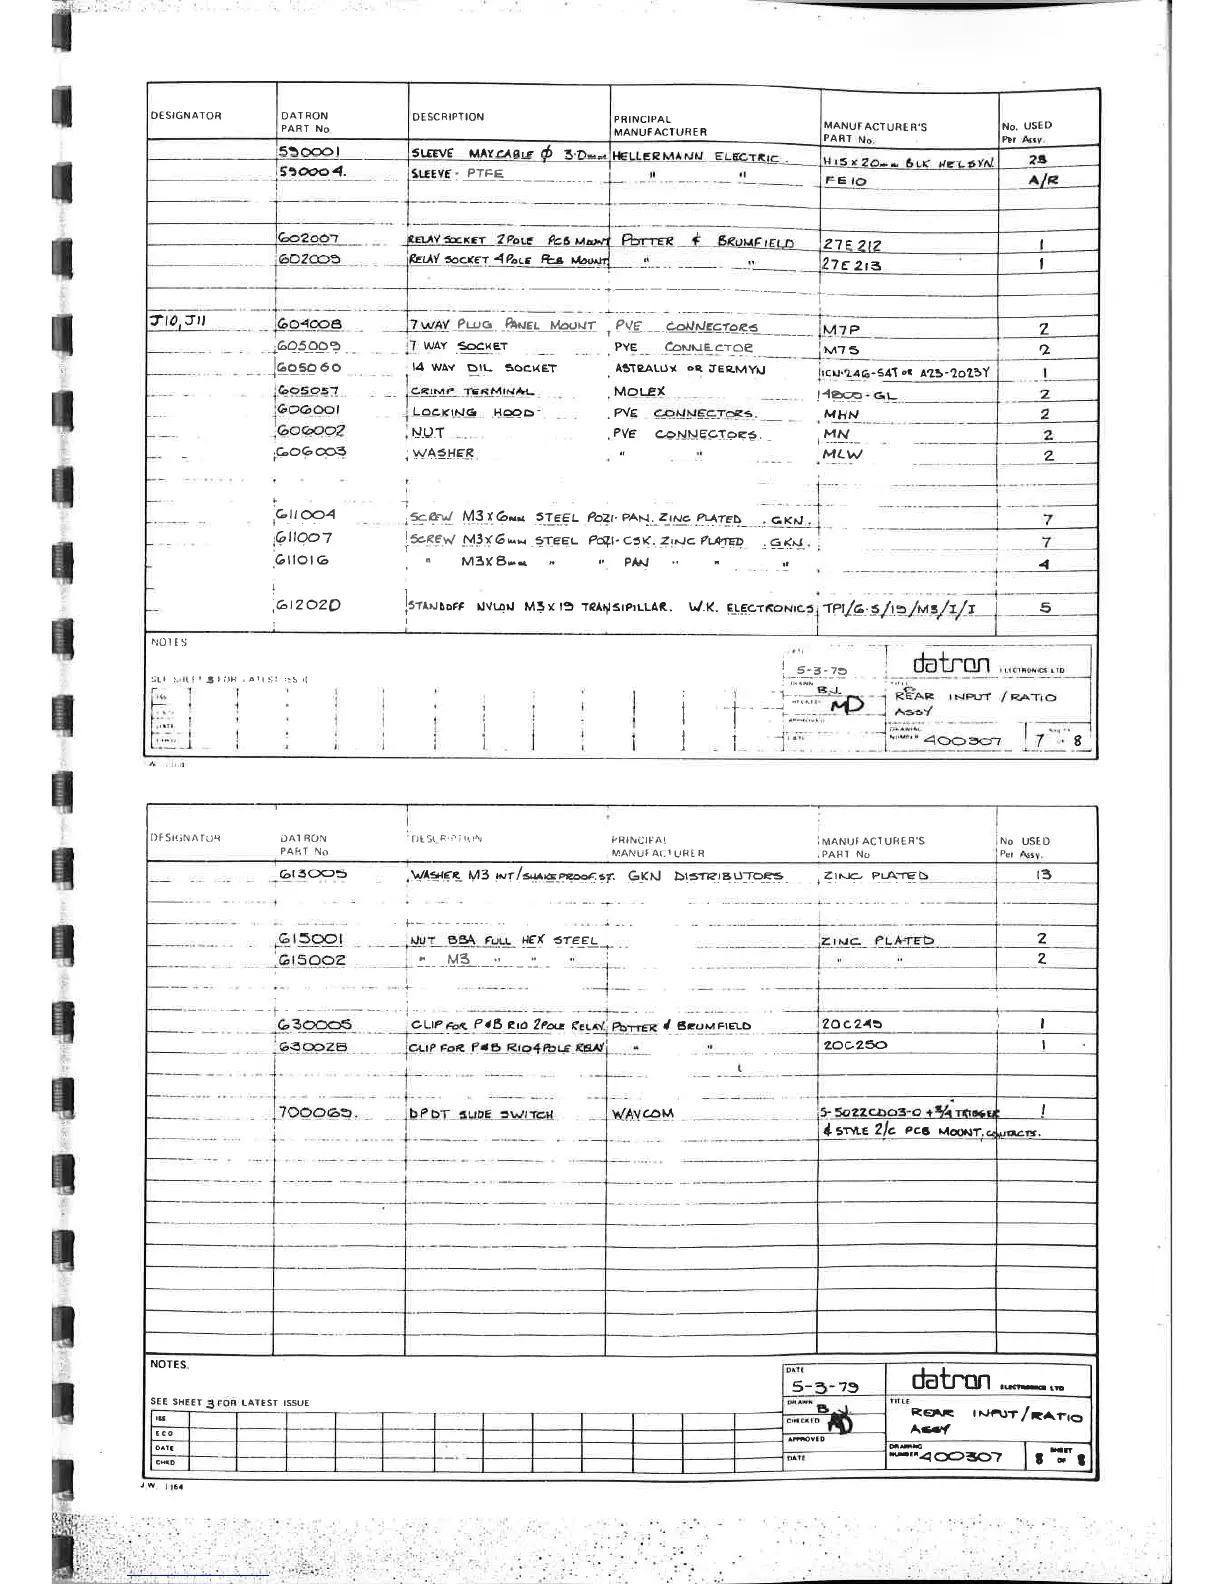 DESIGNATOR DATRON PART No DESCRIPTION PRINCIPAL MANUFACTURER MANUFACTURER'S PART No. No. USED Per Assy.
590001 SLEEVE MAX CABLE ϕ 3·0mm HELLERMANN ELECTRIC. H15 x 20mm BLK HELSYN
590004. SLEEVE - PTFE " " FE 10 A/R
602007 RELAY SOCKET 2 POLE PCB MOUNT POTTER & BRUMFIELD 27E 212 1
602009 RELAY SOCKET 4 POLE PCB MOUNT " " 27E 213 1
J10, J11 604008 7 WAY PLUG PANEL MOUNT PYE CONNECTORS M7P 2
605009 7 WAY SOCKET PYE CONNECTOR M7S 2
605060 14 WAY DIL SOCKET ASTRALUX OR JERMYN ICN-246-S4T OR A23-2023Y 1
605057 CRIMP TERMINAL MOLEX 2
606001 LOCKING HOOD PYE CONNECTORS. MHN 2
606002 NUT PYE CONNECTORS. MN 2
606003 WASHER " " MLW 2
611004 SCREW M3 X 6mm STEEL POZI-PAN. ZINC PLATED. GKN. 7
611007 SCREW M3 X 6mm STEEL POZI-CSK. ZINC PLATED. GKN. 7
611016 " M3 X 8mm " " PAN " " " 4
612020 STANDOFF NYLON M3 X 19 TRANSIPILLAR. W.K. ELECTRONICS TPI/6·5/19/M3/I/I 5
NOTES
SEE SHEET 3 FOR LATEST ISSUE
5-3-79
datron ELECTRONICS LTD
DRAWN B.J.
CHECKED MD
APPROVED
DATE
TITLE REAR INPUT / RATIO ASSY
DRAWING NUMBER 400307 7 OF 8
DESIGNATOR DATRON PART No DESCRIPTION PRINCIPAL MANUFACTURER MANUFACTURER'S PART No No USED Per Assy.
613005 WASHER M3 INT/SHAKEPROOF. ST. GKN DISTRIBUTORS ZINC PLATED 13
615001 NUT 8BA FULL HEX STEEL ZINC PLATED 2
615002 " M3 " " " " " 2
630005 CLIP FOR P&B R10 2 POLE RELAY. POTTER & BRUMFIELD 20C249 1
630028 CLIP FOR P&B R10 4 POLE RELAY " " 20C250 1
700069. DPDT SLIDE SWITCH WAYCOM S-5022CD03-0 + 3/4 TRIGGER 1
& STYLE 2/c PCB MOUNT, CONTACTS.
NOTES.
SEE SHEET 3 FOR LATEST ISSUE
ISS
ECO
DATE
CHKD
DATE 5-3-79
datron ELECTRONICS LTD
DRAWN B.J.
CHECKED MD
APPROVED
DATE
TITLE REAR INPUT / RATIO ASSY
DRAWING NUMBER 400307 SHEET 8 OF 8
J.W. 1164